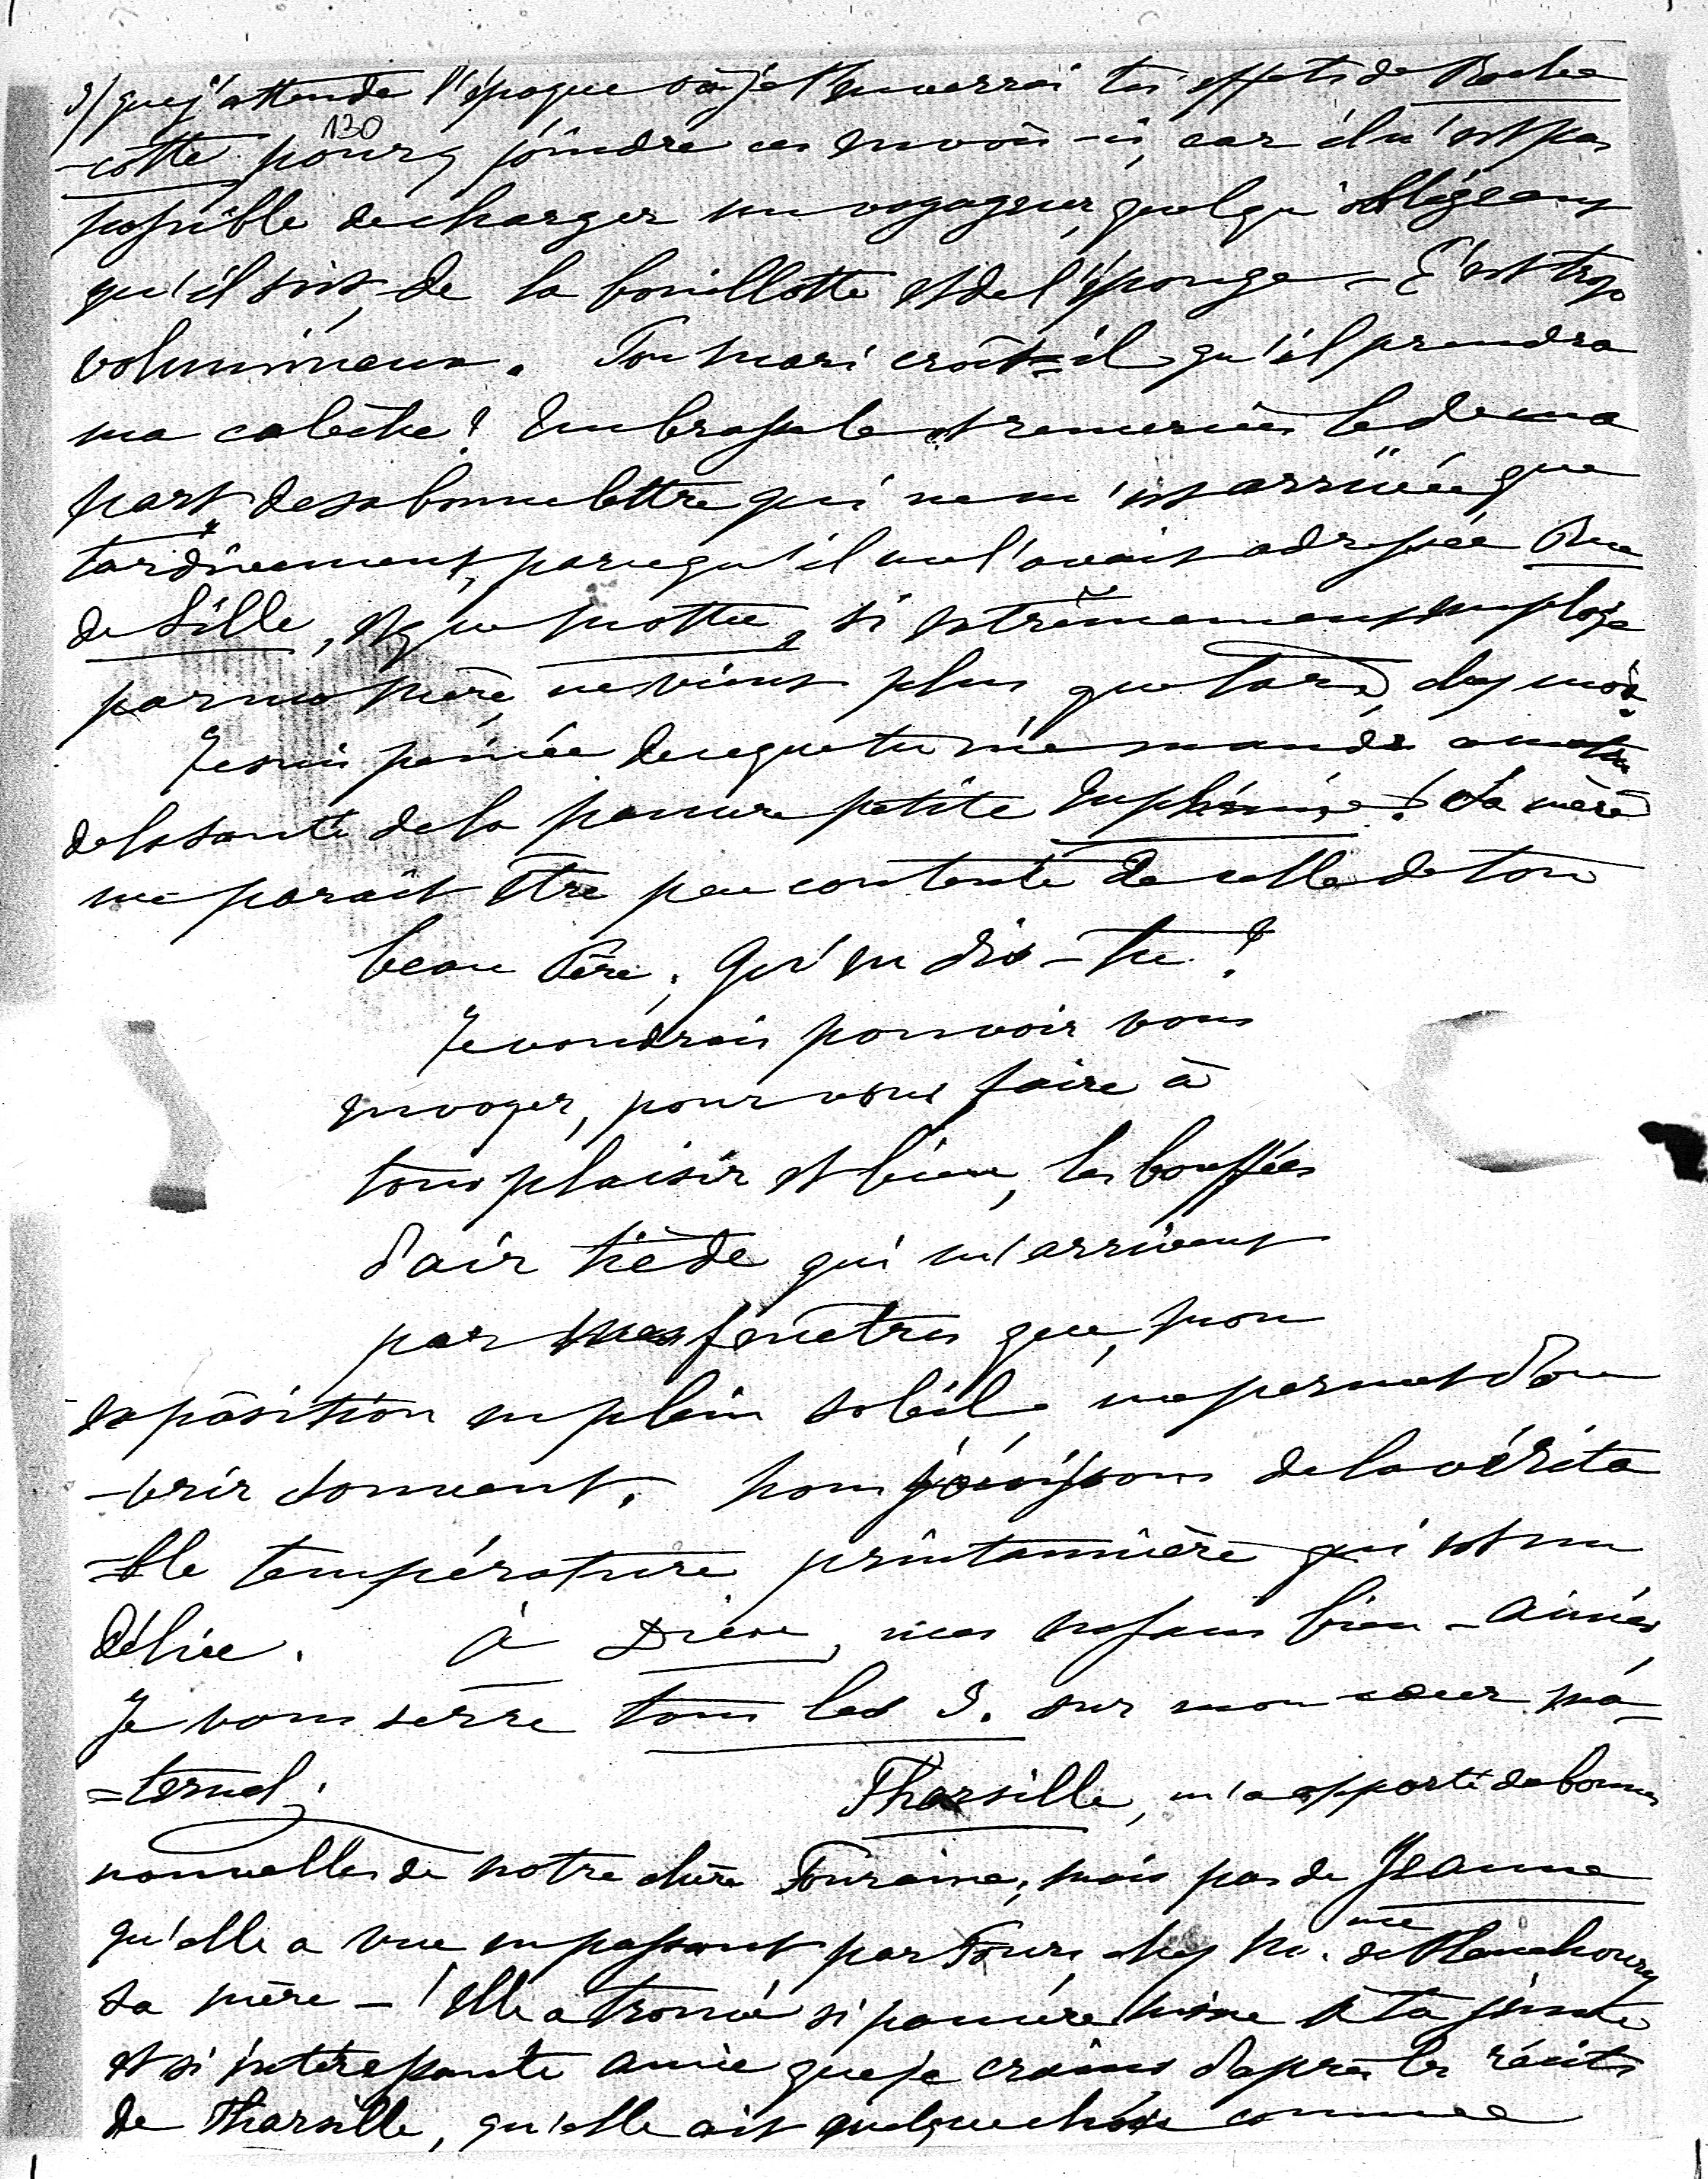 2/ que j'attende l'époque où je t'enverrai tes effets de Roche
130
-cotte pour y joindre ces envois-ci, car il n'est pas
possible de charger un voyageur, quelqu'obligeant
qu'il soit, de la bouillotte et de l'éponge - C'est trop
volumineux. Ton mari croit-il qu'il prendra
ma calèche? Embrasse le et remercies le de ma
part de sa bonne lettre qui ne m'est arrivée que
tardivement, parcequ'il me l'avait adressée Rue
de Lille, et que Mottu, si extrêmement employé
par ma mère, ne vient plus que tard, chez moi.
Je suis peinée de ce que tu me mandes
de la santé de la pauvre petite Euphémie! Sa mère
me parait être peu contente de celle de ton
beau Père; Qu'en dis-tu?
Je voudrais pouvoir vous
envoyer, pour vous faire à
tous plaisir et bien, les bouffées
d'air tiède qui m'arrivent
par mes fenêtres que, mon
exposition en plein soleil me permet d'ou
-vrir souvent. Nous jouissons de la vérita
-ble température printannière qui est un
délice. à Dieu, mes enfans bien-aimés,
Je vous serre tous les 3. sur mon cœur ma-
=ternel;
Tharsille, m'a apporté de bonnes
nouvelles de notre chère Touraine; mais pas de Jeanne
qu'elle a vue en passant par Tours chez Me. de
sa mère - Elle a trouvé si pauvre mine à ta jeune
et si intéressante amie que je crains d'après les récits
de Tharsille, qu'elle ait quelque chose comme